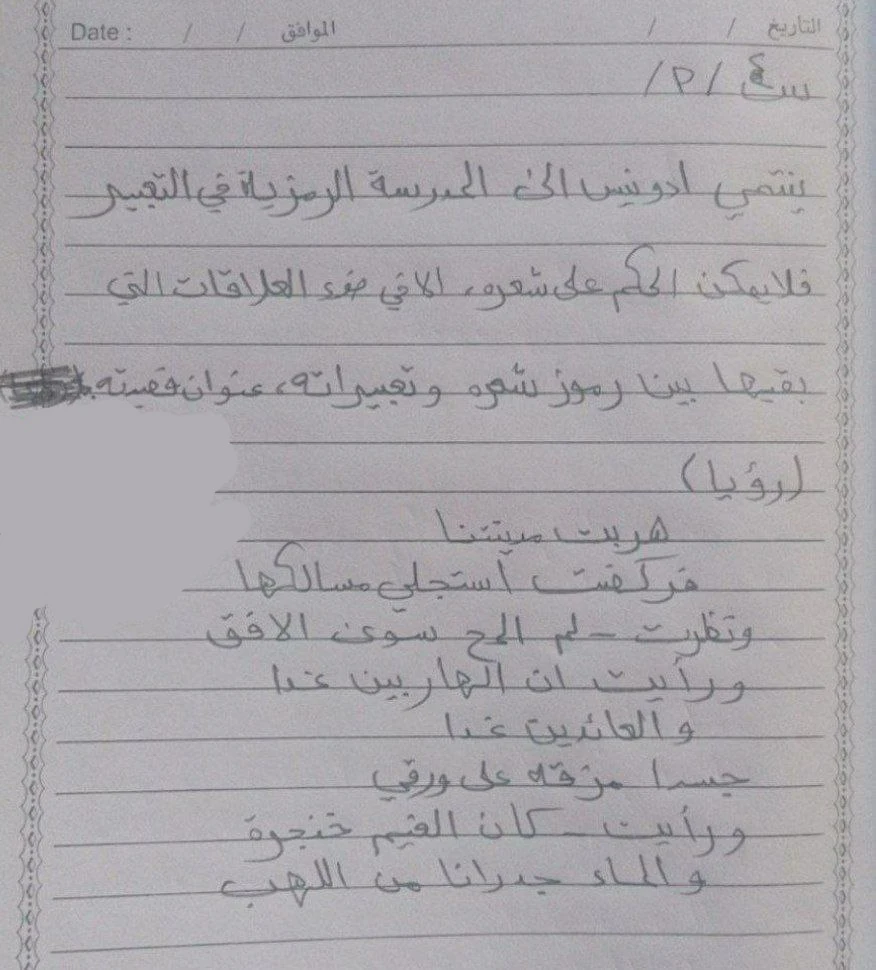 التاريخ / / الموافق / / Date :
س٤ /P/
ينتمي ادونيس الى المدرسة الرمزية في التعبير
فلا يمكن الحكم على شعره، الا في ضوء العلاقات التي
يقيمها بين رموز شعره وتعبيراته، عنوان قصيدته
(رؤيا)
هربت مدينتنا
فركضت أستجلي مسالكها
ونظرت - لم المح سوى الافق
ورأيت ان الهاربين غدا
والعائدين غدا
جسدا مزقه على ورقي
ورأيت - كان الغيم خنجرة
والماء جدرانا من اللهب